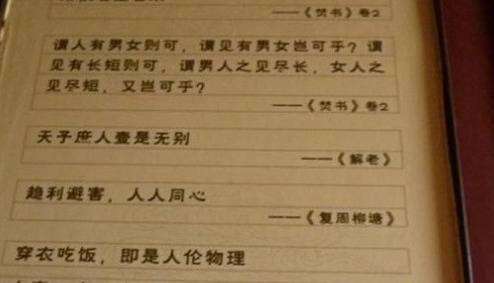 ——《焚书》卷2
谓人有男女则可，谓见有男女岂可乎？谓
见有长短则可，谓男人之见尽长，女人之
见尽短，又岂可乎？
——《焚书》卷2
天子庶人壹是无别
——《解老》
趋利避害，人人同心
——《复周柳塘》
穿衣吃饭，即是人伦物理